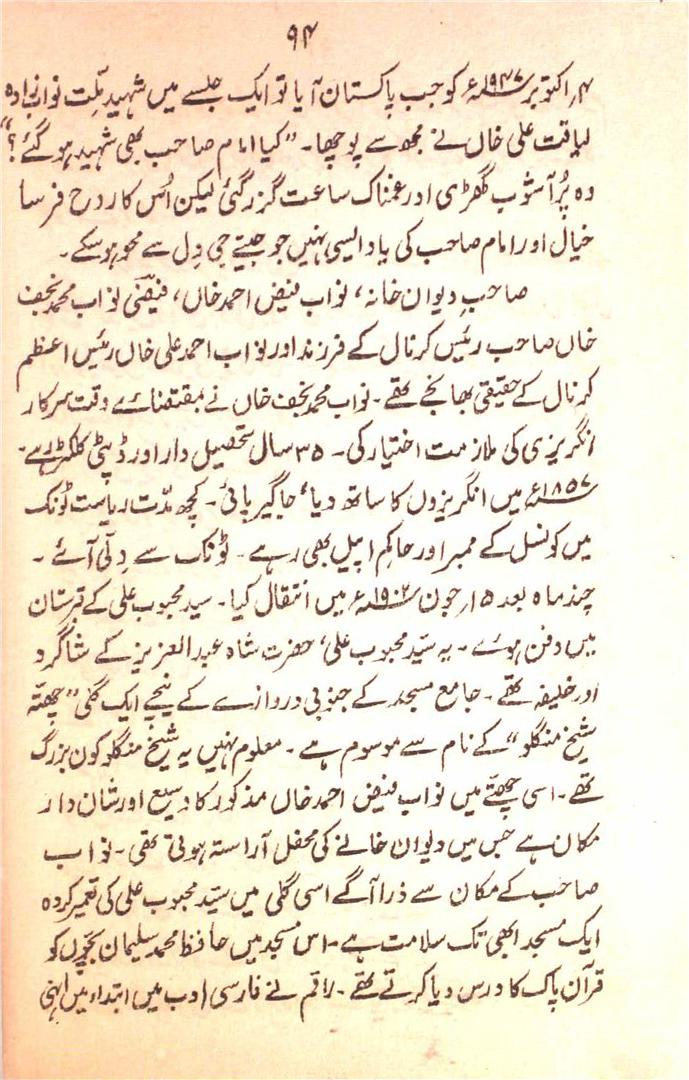 ۹۴
۴؍اکتوبر ۱۹۴۷ء کو جب پاکستان آیا تو ایک جلسے میں شہید ملت نواب زادہ
لیاقت علی خاں نے مجھ سے پوچھا۔ "کیا امام صاحب بھی شہید ہو گئے؟"
وہ پُر آشوب گھڑی اور غمناک ساعت گزر گئی لیکن اُس کا روح فرسا
خیال اور امام صاحب کی یاد ایسی نہیں جو جیتے جی دِل سے محو ہو سکے۔
صاحبِ دیوان خانہ، نواب فیض احمد خاں، فیضی نواب محمد نجف
خاں صاحب رئیس کرنال کے فرزند اور نواب احمد علی خاں رئیس اعظم
کرنال کے حقیقی بھانجے تھے۔ نواب محمد نجف خاں نے بمقتضائے وقت سرکار
انگریزی کی ملازمت اختیار کی۔ ۳۵ سال تحصیل دار اور ڈپٹی کلکٹر رہے۔
۱۸۵۷ء میں انگریزوں کا ساتھ دیا، جاگیر پائی۔ کچھ مدّت ریاست ٹونک
میں کونسل کے ممبر اور حاکمِ اپیل بھی رہے۔ ٹونک سے دِلّی آئے۔
چند ماہ بعد ۱۵؍جون ۱۹۰۲ء میں انتقال کیا۔ سید محبوب علی کے قبرستان
میں دفن ہوئے۔ یہ سیّد محبوب علی، حضرت شاہ عبدالعزیز کے شاگرد
اور خلیفہ تھے۔ جامع مسجد کے جنوبی دروازے کے نیچے ایک گلی "چھتّہ
شیخ منگلو" کے نام سے موسوم ہے۔ معلوم نہیں یہ شیخ منگلو کون بزرگ
تھے۔ اسی چھتّے میں نواب فیض احمد خاں مذکور کا وسیع اور شان دار
مکان ہے جس میں دیوان خانے کی محفل آراستہ ہوتی تھی۔ نواب
صاحب کے مکان سے ذرا آگے اسی گلی میں سیّد محبوب علی کی تعمیر کردہ
ایک مسجد ابھی تک سلامت ہے۔ اس مسجد میں حافظ محمد سلیمان بچّوں کو
قرآن پاک کا درس دیا کرتے تھے۔ راقم نے فارسی ادب میں ابتداء میں انہی